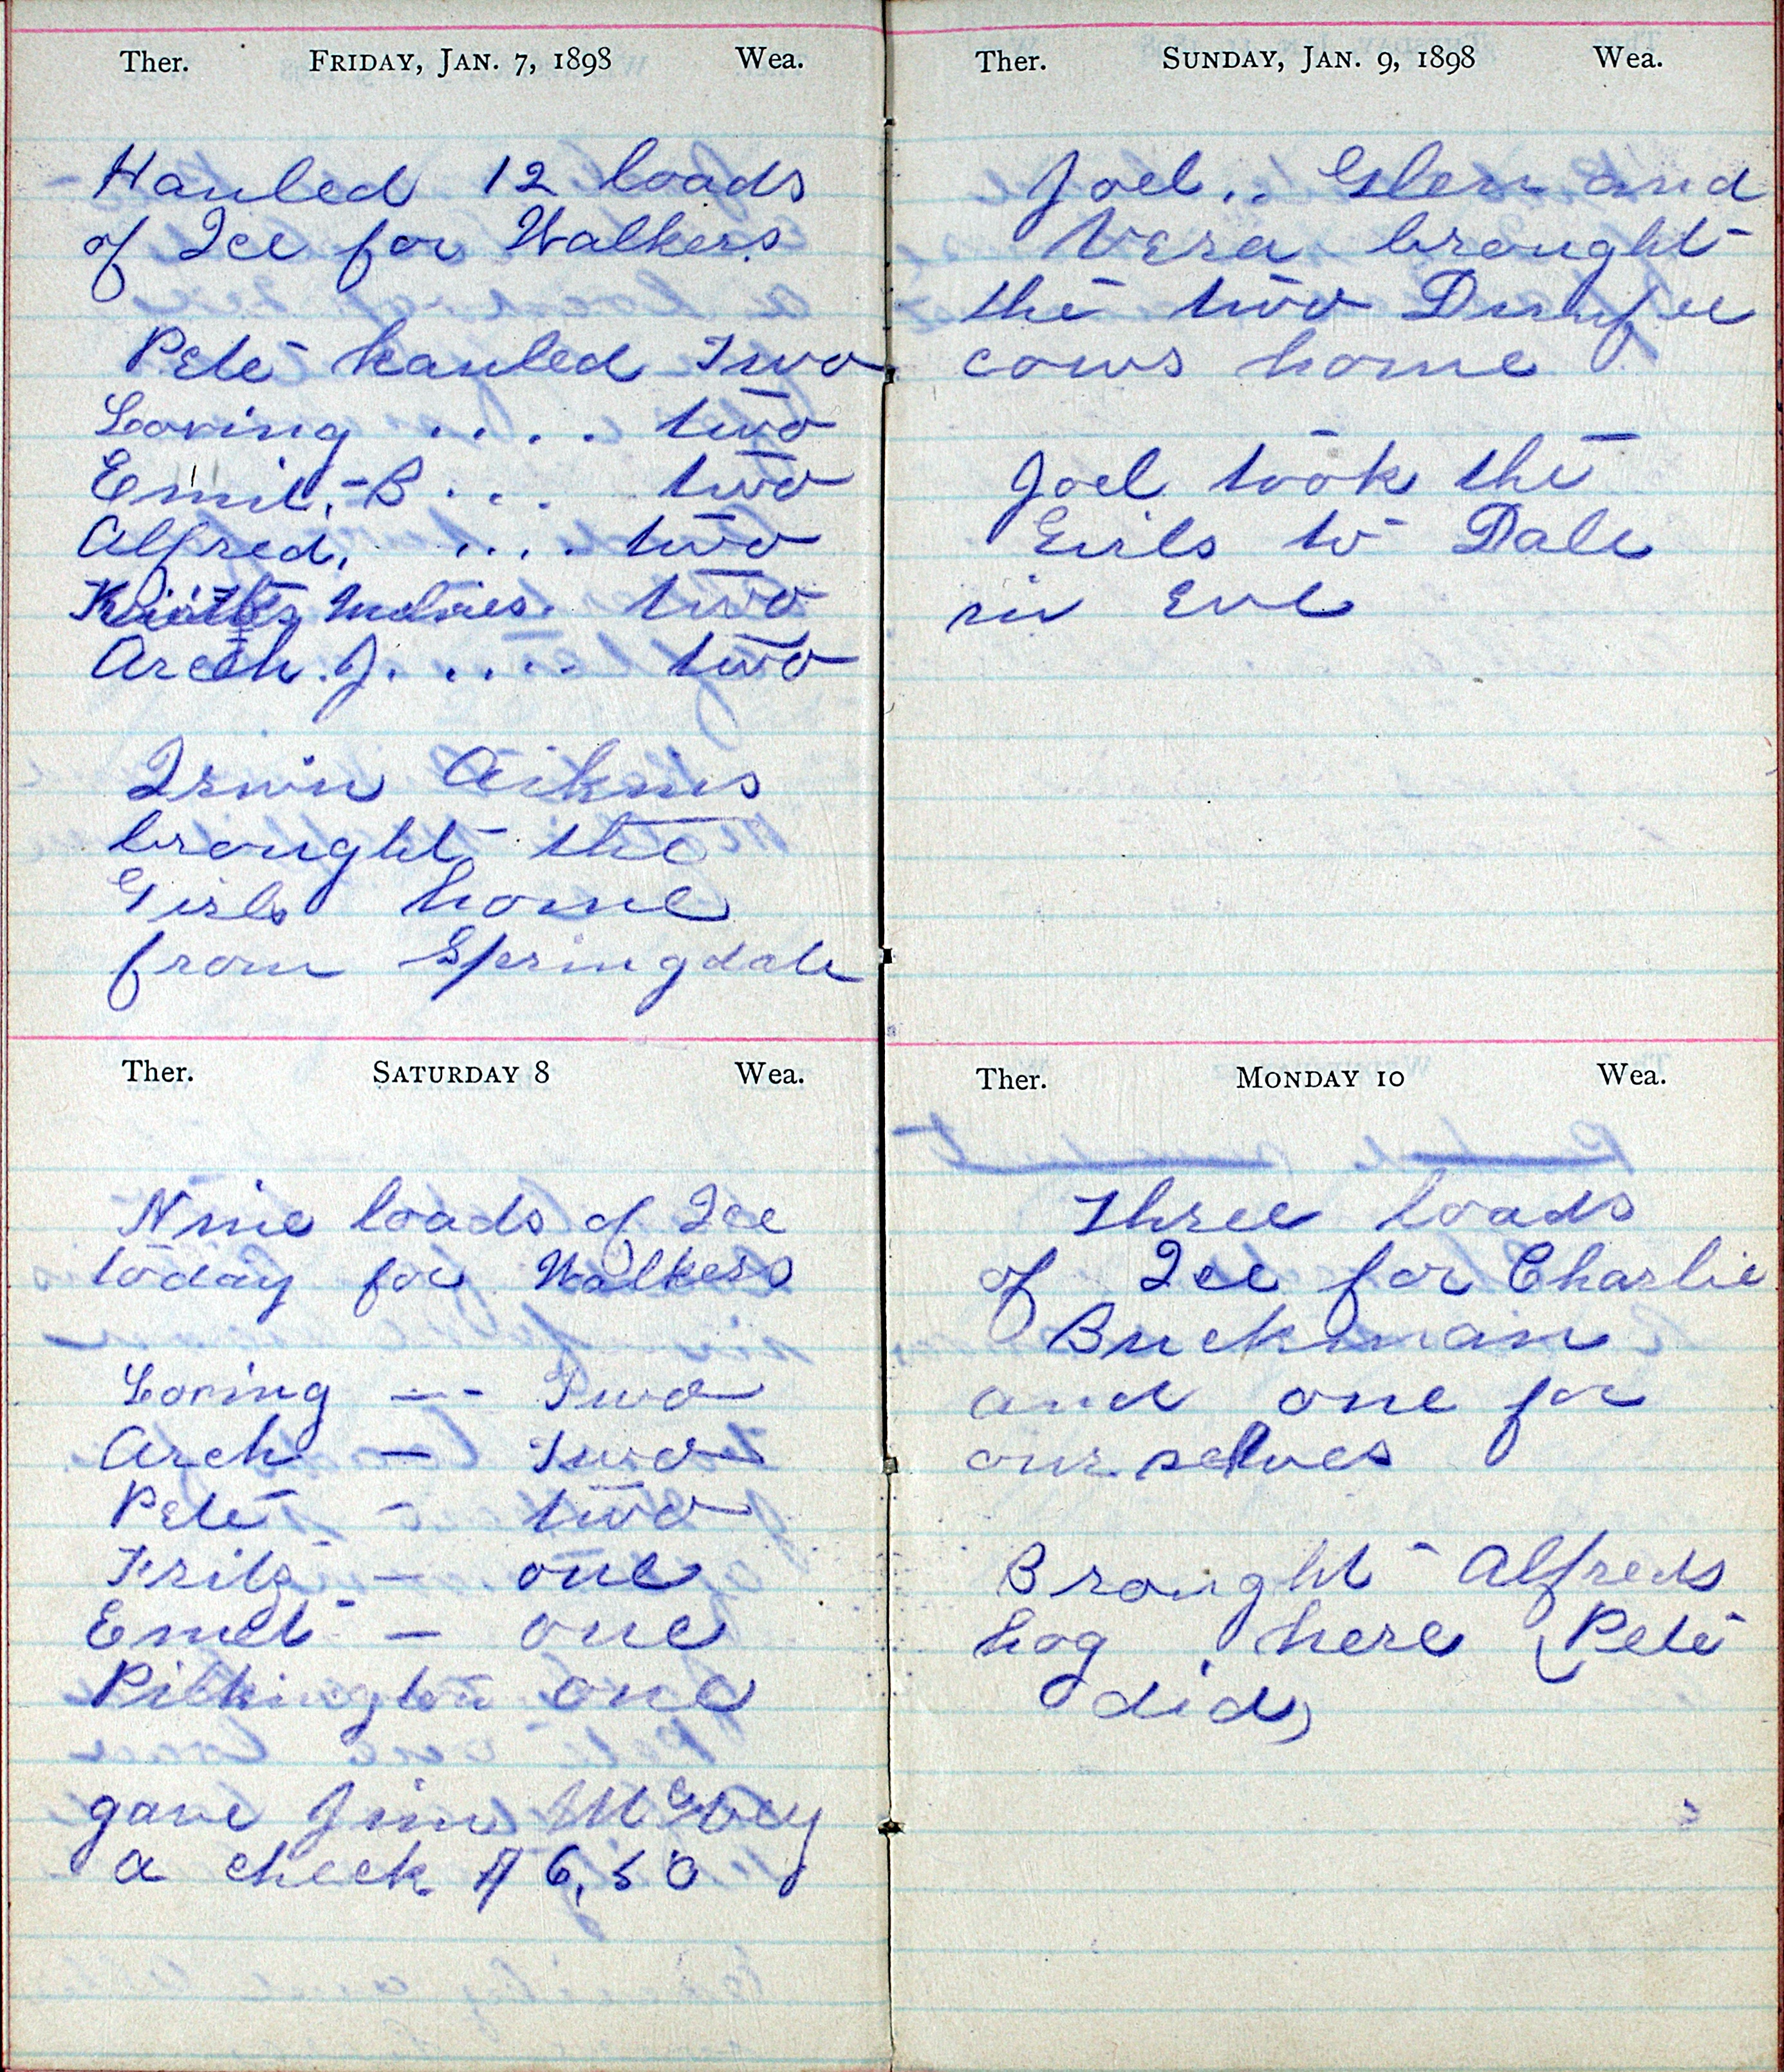 Ther. FRIDAY, JAN. 7, 1898 Wea.
Hauled 12 loads
of Ice for Walkers
Pete hauled Two
Loring .... two
Emil, B ... two
Alfred, .... two
two
Arch. J. .... two
Irwin Aikins
brought the
Girls home
from Springdale
Ther. SATURDAY 8 Wea.
Nine loads of Ice
today for Walkers
Loring -- Two
Arch - Two
Pete - two
Fritz - one
Emil - one
Pilkington one
gave Jim McCoy
a check $6.50
Ther. SUNDAY, JAN. 9, 1898 Wea.
Joel.. Glen and
Vera brought
the two Durfee
cows home
Joel took the
Girls to Dale
in Eve
Ther. MONDAY 10 Wea.
Three loads
of Ice for Charlie
Buckman
and one for
ourselves
Brought Alfreds
hog here (Pete
did)